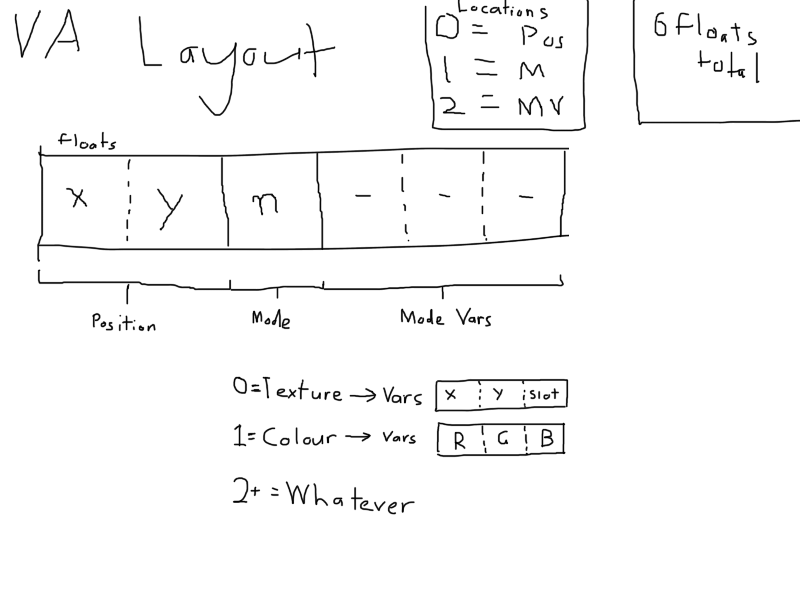 VA Layout
Locations
0 = Pos
1 = M
2 = MV
6 Floats
total
Floats
x y n - - -
Position Mode Mode Vars
0=Texture → Vars x y slot
1=Colour → Vars R G B
2+ = Whatever